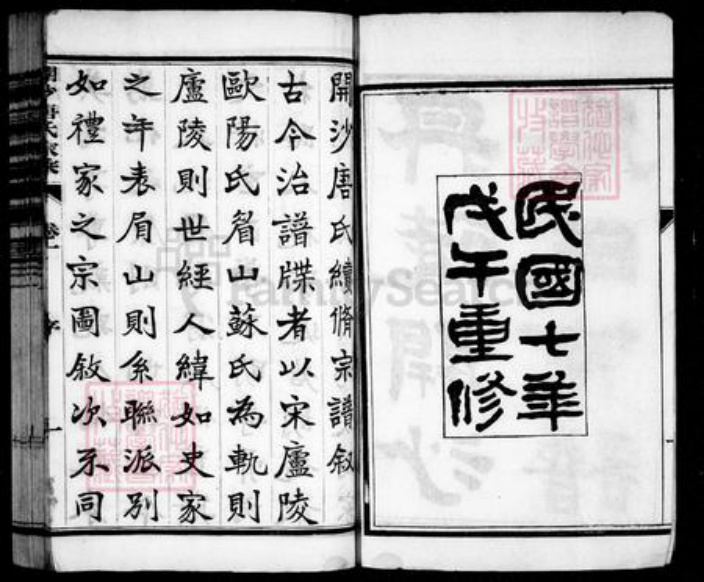 民國七年
戊午重修
開沙唐氏續脩宗譜敘
古今治譜牒者以宋廬陵
歐陽氏眉山蘇氏為軌則
廬陵則世經人緯如史家
之年表眉山則系聯派別
如禮家之宗圖敘次不同
卷一
序
一
FamilySearch